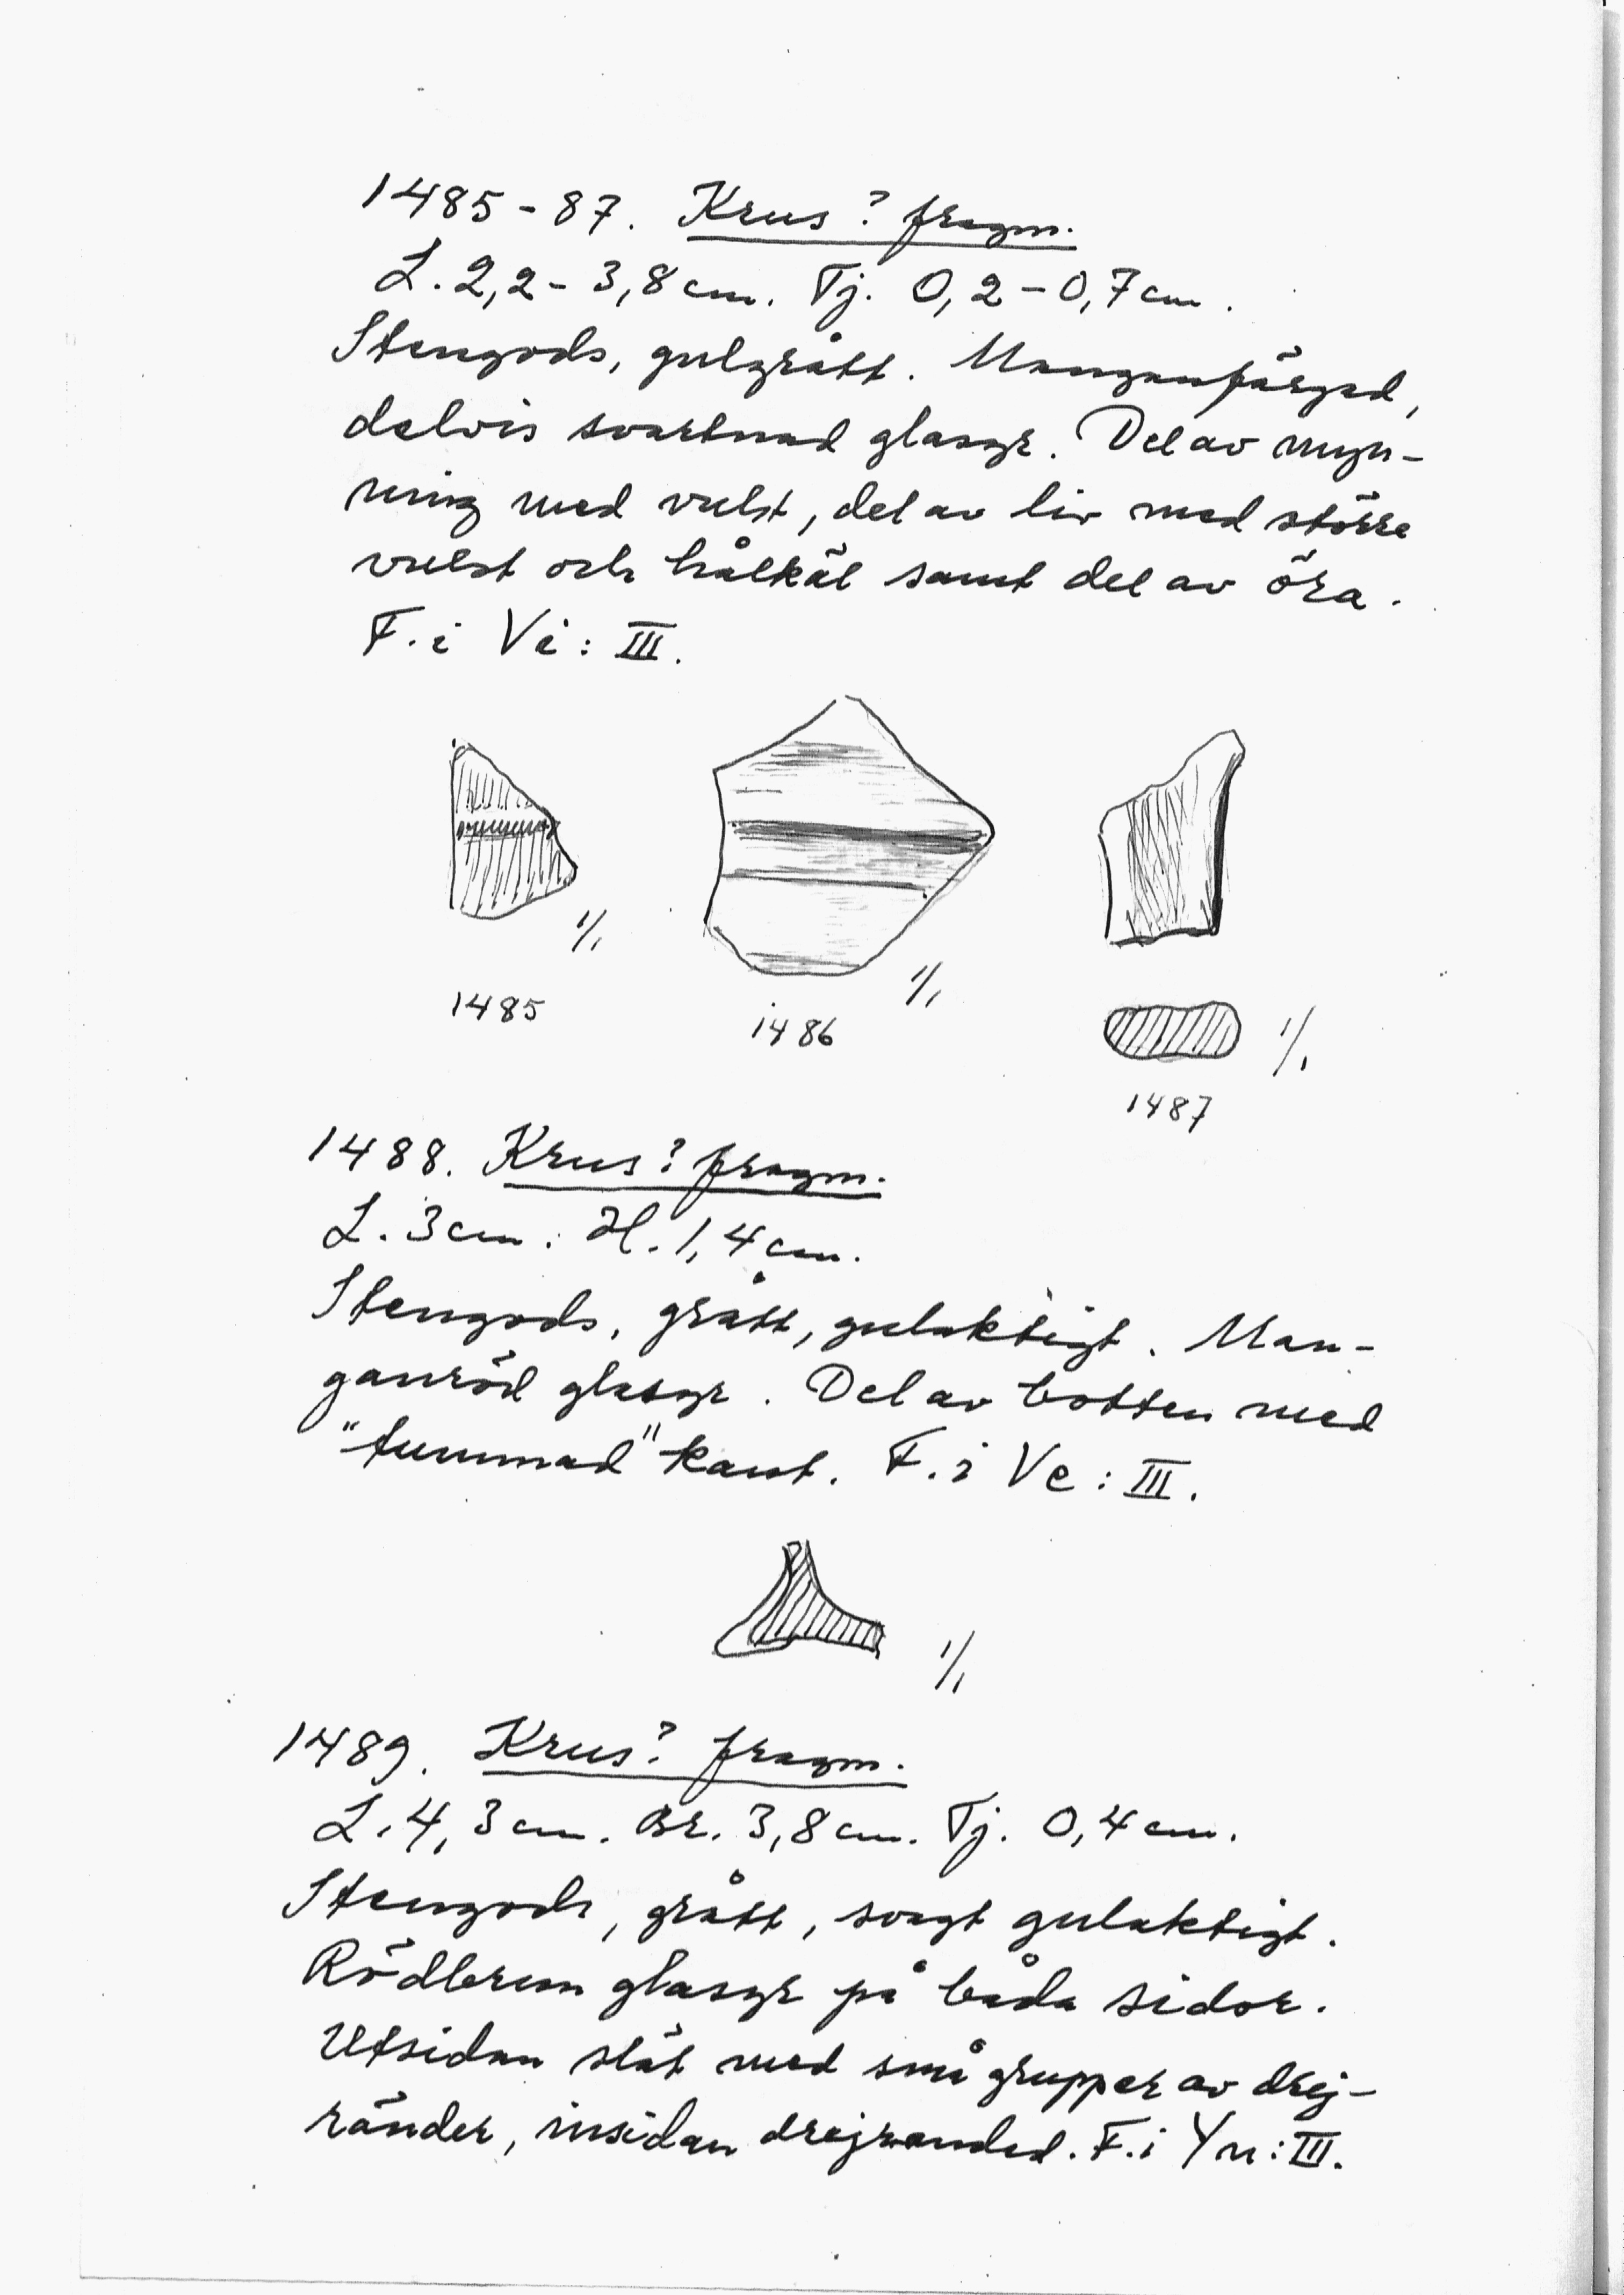 1485-87. Krus? fragm.
L. 2,2-3,8 cm. Tj. 0,2-0,7 cm.
Stengods, gulgrått. Manganfärgad,
delvis svartnad glasyr. Del av myn-
ning med vulst, del av liv med större
vulst och hålkäl samt del av öra.
F. i Vi: III.
1/1
1485
1/1
1486
1/1
1487
1488. Krus? fragm.
L. 3 cm. H. 1,4 cm.
Stengods, grått, gulaktigt. Man-
ganröd glasyr. Del av botten med
"tummad" kant. F. i Ve: III.
1/1
1489. Krus? fragm.
L. 4,3 cm. Br. 3,8 cm. Tj. 0,4 cm.
Stengods, grått, svagt gulaktigt.
Rödbrun glasyr på båda sidor.
Utsidan slät med små grupper av drej-
ränder, insidan drejrandad. F. i Yn: III.